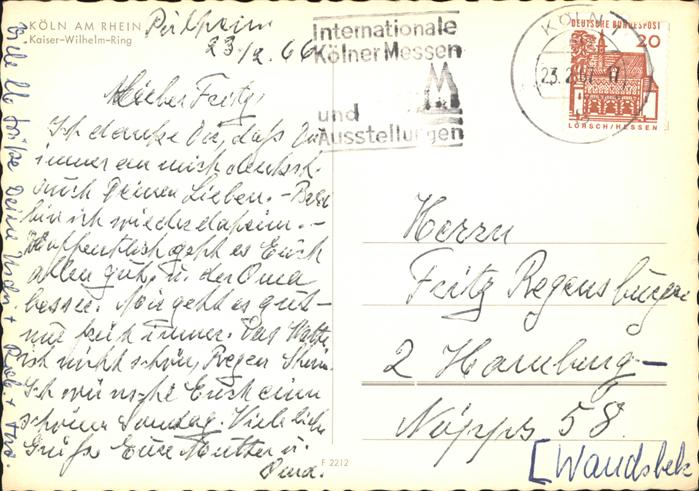 KÖLN AM RHEIN
Kaiser-Wilhelm-Ring
23./2. 66
Internationale
Kölner Messen
und
Ausstellungen
KÖLN
23.2.
DEUTSCHE BUNDESPOST
20
LORSCH/HESSEN
Mein lieber Fritz,
Ich danke Dir, daß Du
immer an mich denkst.
auch Deinen Lieben. –
bin ich wieder daheim. –
Hoffentlich geht es Euch
allen gut, u. der Oma
besser. Mir geht es gut –
nur müd immer. Das Wetter
ist nicht schön, Regen Sturm.
Ich wünsche Euch einen
schönen Sonntag. Viele liebe
Grüße Eure Mutter u.
Oma.
Herrn
Fritz Regensburger
2 Hamburg –
58
[Wandsbek
F 2212
Viele lb Grüße Deine